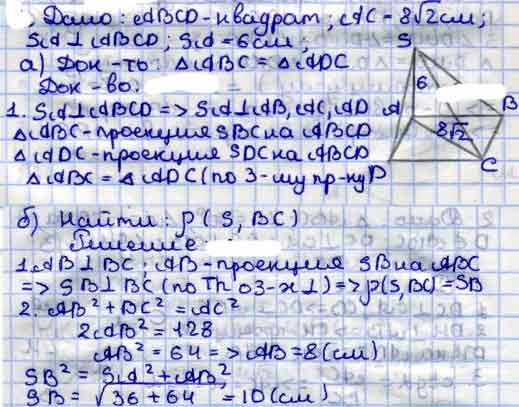 Дано: ABCD - квадрат; AC = 8√2 см;
SA ⊥ ABCD; SA = 6 см;
а) Док-ть: △ABC = △ADC
Док-во:
1. SA ⊥ ABCD => SA ⊥ AB, AC, AD
△ABC - проекция SBC на ABCD
△ADC - проекция SDC на ABCD
△ABC = △ADC (по 3-му пр-ку)
S
6
A
B
8√2
D
C
б) Найти: ρ(S, BC)
Решение:
1. AB ⊥ BC; AB - проекция SB на ABC
=> SB ⊥ BC (по Th о 3-х ⊥) => ρ(S, BC) = SB
2. AB² + BC² = AC²
2AB² = 128
AB² = 64 => AB = 8 (см)
SB² = SA² + AB²
SB = √36 + 64 = 10 (см)